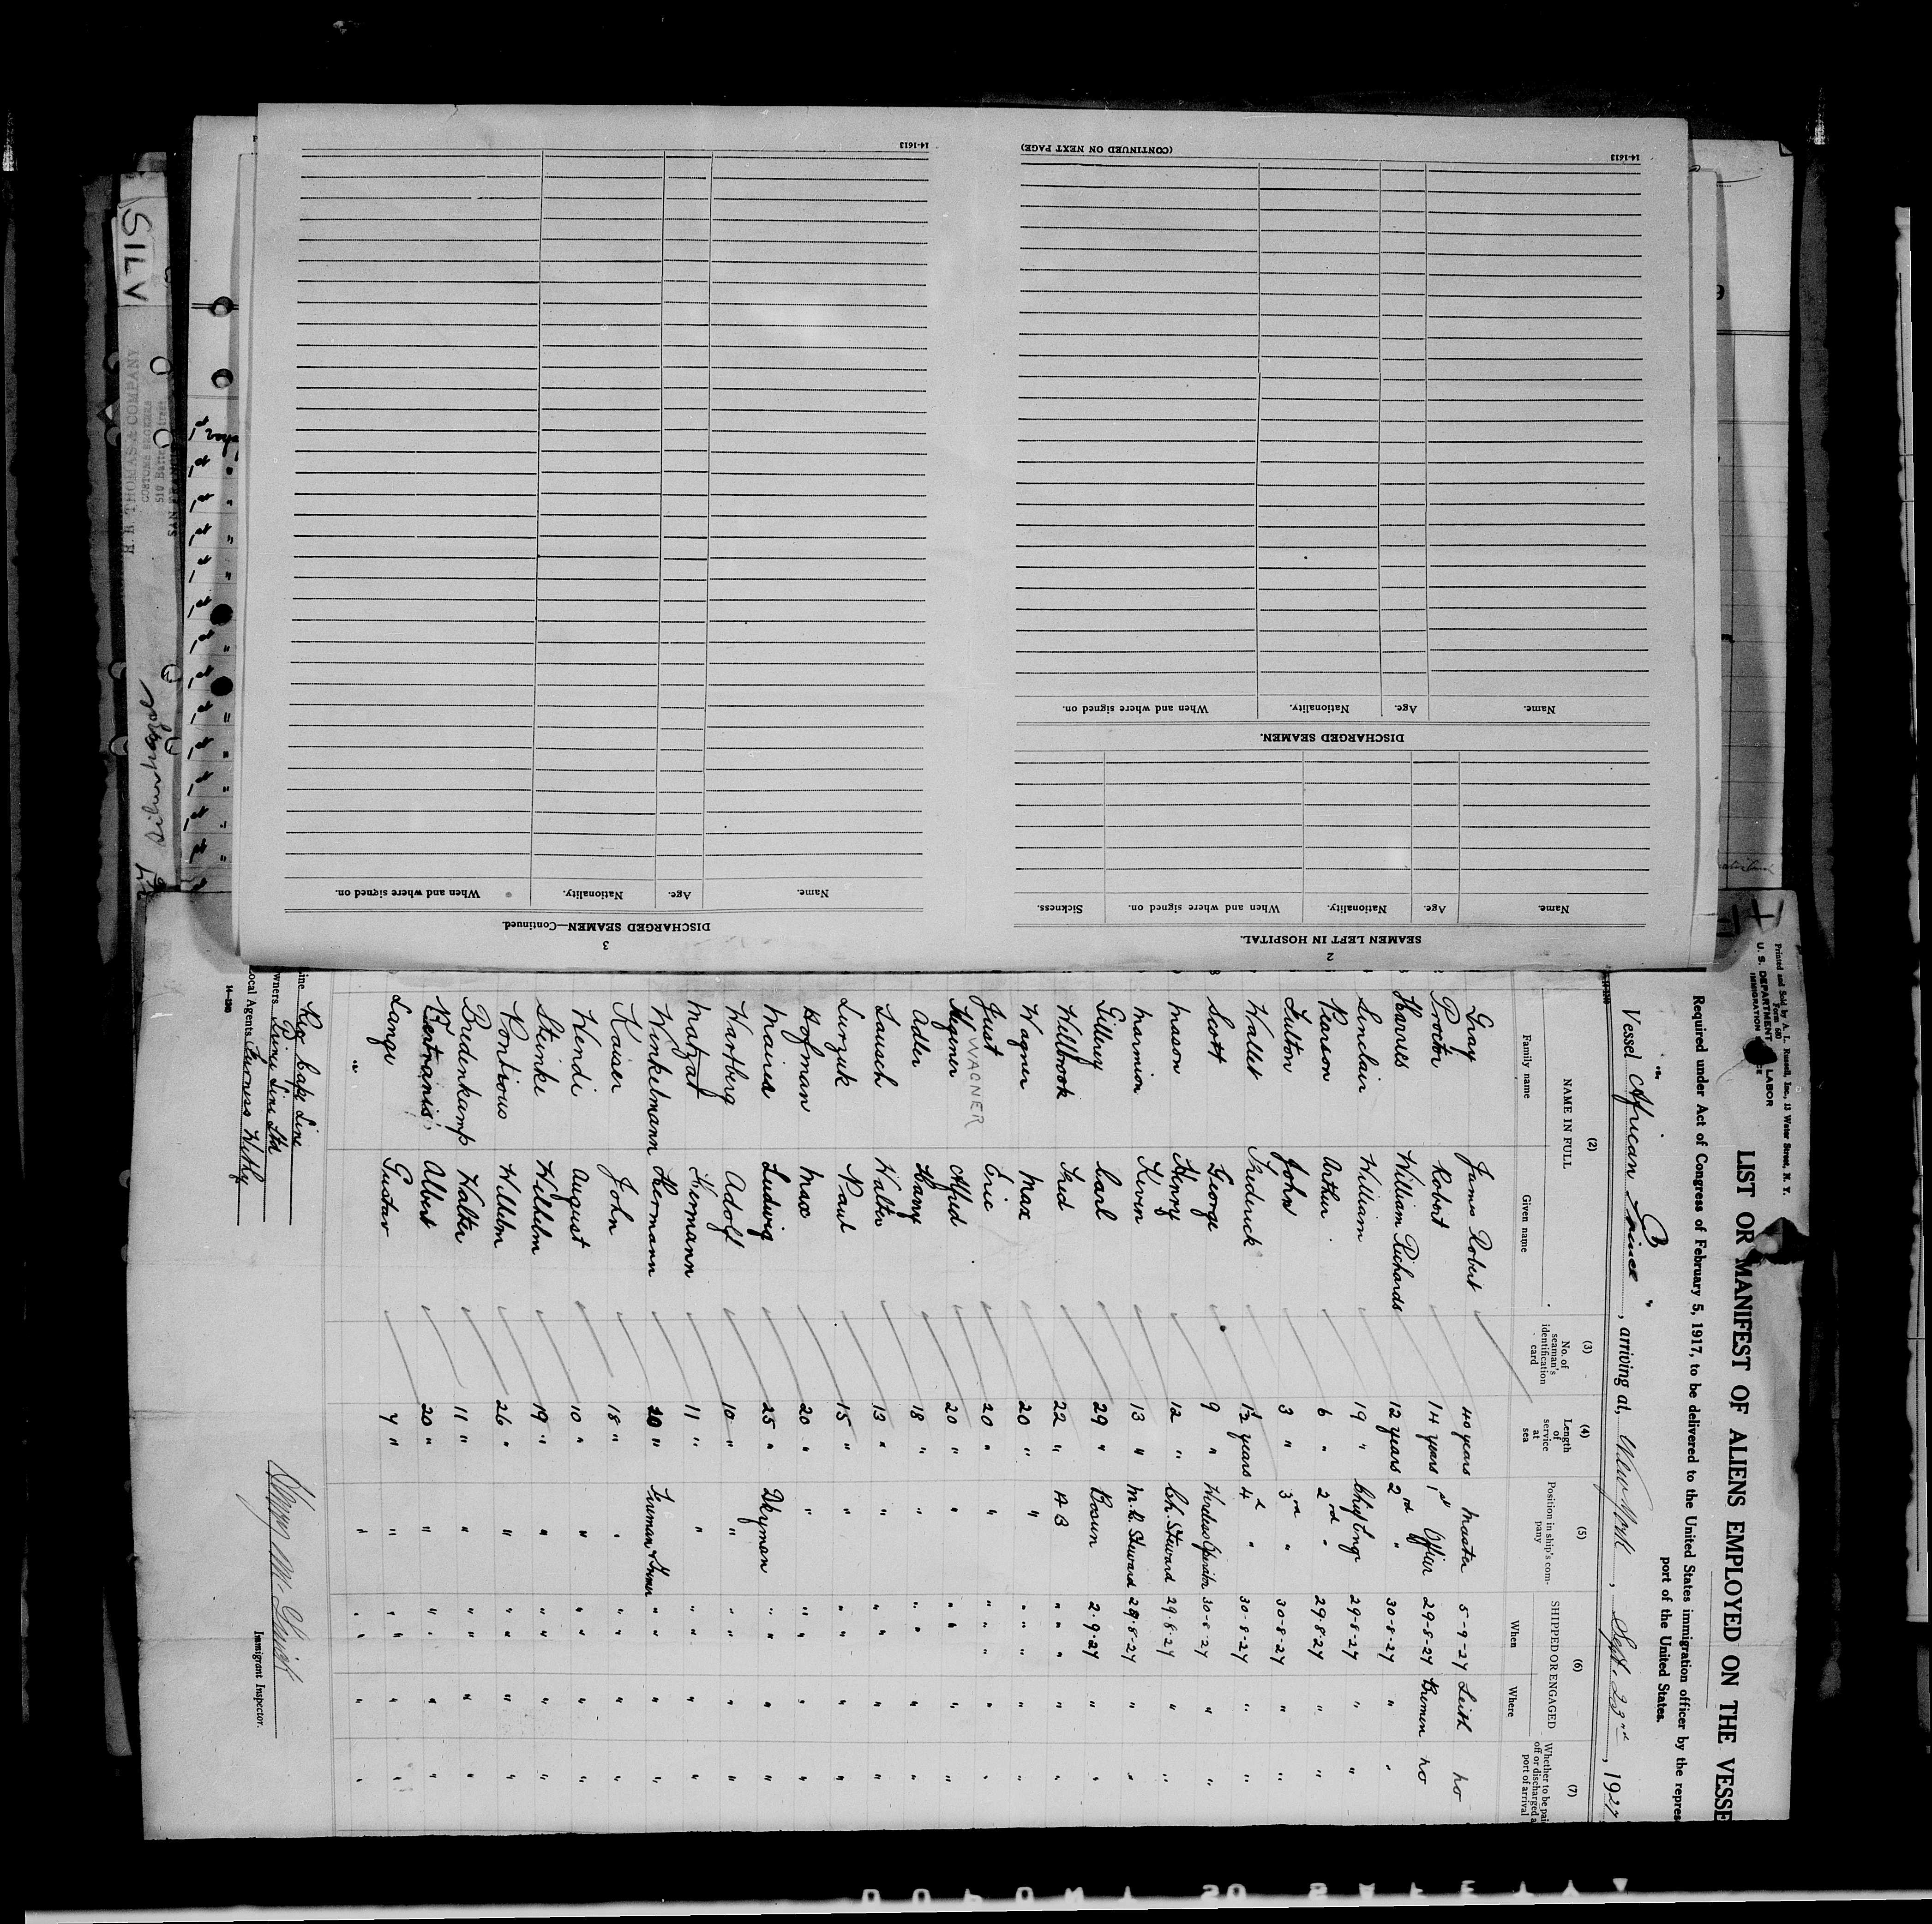 2
SEAMEN LEFT IN HOSPITAL.
Name. Age. Nationality. When and where signed on. Sickness.
DISCHARGED SEAMEN.
Name. Age. Nationality. When and where signed on.
14-1613 (CONTINUED ON NEXT PAGE)
3
DISCHARGED SEAMEN—Continued.
Name. Age. Nationality. When and where signed on.
14-1613
SILV
H. R. THOMAS & COMPANY
CUSTOMS BROKERS
510 Battery Street
Printed and Sold by A. L. Russell, Inc., 13 Water Street, N. Y.
Form 680
U. S. DEPARTMENT LABOR
IMMIGRATION
LIST OR MANIFEST OF ALIENS EMPLOYED ON THE VESSE
Required under Act of Congress of February 5, 1917, to be delivered to the United States immigration officer by the repres
port of the United States.
Vessel "African Prince", arriving at New York, Sept. 23rd, 1927
(2) (3) (4) (5) (6) (7)
NAME IN FULL No. of seaman's identification card Length of service at sea Position in ship's company SHIPPED OR ENGAGED Whether to be pai off or discharged a port of arrival
Family name Given name When Where
Gray James Robert 40 years Master 5-9-27 Leith no
Proctor Robert 14 years 1st Officer 29-8-27 Bremen no
Harries William Richards 12 years 2nd " 30-8-27 " "
Sinclair William 19 " Chief Engr 29-8-27 " "
Pearson Arthur 6 " 2nd " 29-8-27 " "
Fulton John 3 " 3rd " 30-8-27 " "
Wallet Fredrick 1½ years 4th " 30-8-27 " "
Scott George 9 " Wireless Operator 30-8-27 " "
Mason Henry 12 " Ch. Steward 29-8-27 " "
Marmion Kevin 13 " M.R. Steward 29-8-27 " "
Gillney Carl 29 " Bosun 2-9-27 " "
Willbrook Fred 22 " A B " " " "
Wagner Max 20 " " " " " "
Just Eric 20 " " " " " "
WAGNER
Wegener Alfred 20 " " " " " "
Adler Harry 18 " " " " " "
Lausch Walter 13 " " " " " "
Lurzuk Paul 15 " " " " " "
Hofman Max 20 " " " " " "
Maired Ludwig 25 " Dkyman " " " "
Wartberg Adolf 10 " " " " " "
Matzrat Hermann 11 " " " " " "
Winkelmann Hermann 20 " Fireman & Trimmer " " " "
Kaiser John 18 " " " " " "
Wendi August 10 " " " " " "
Steinke Wilhelm 19 " " " " " "
Pontious Wilhelm 26 " " " " " "
Bredenkamp Walter 11 " " " " " "
Bertranis Albert 20 " " " " " "
Lange Gustav 7 " " " " " "
Line Reg. Cape Line
wners Prince Line Ltd
ocal Agents Furness Withy
Immigrant Inspector.